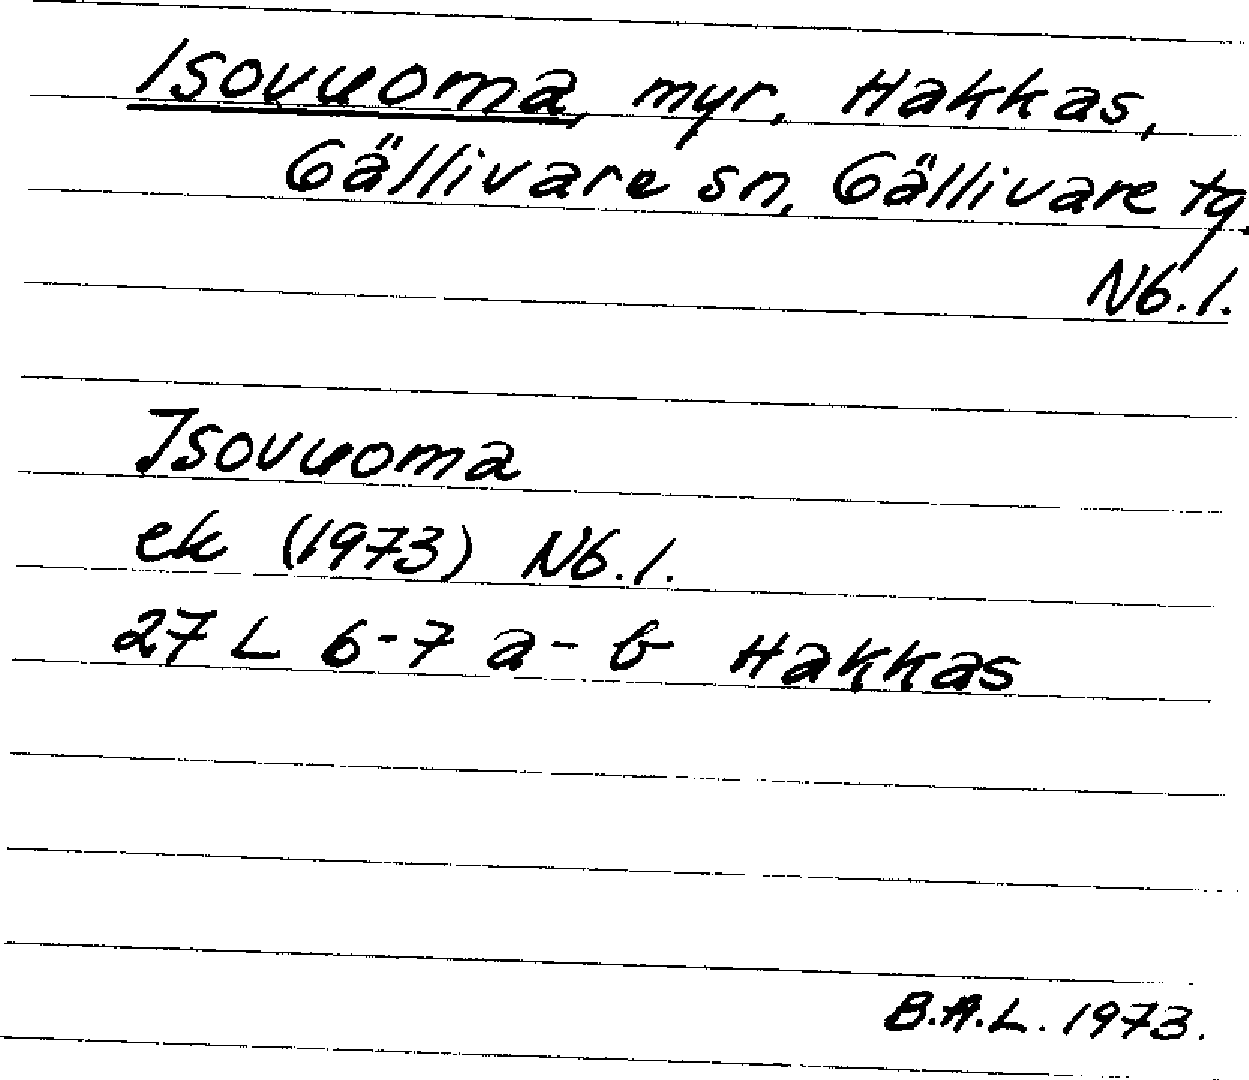 Isovuoma, myr, Hakkas,
Gällivare sn, Gällivare tg.
Nb.l.
Isovuoma
ek (1973) Nb.l.
27 L 6-7 a-b Hakkas
B.A.L. 1973.